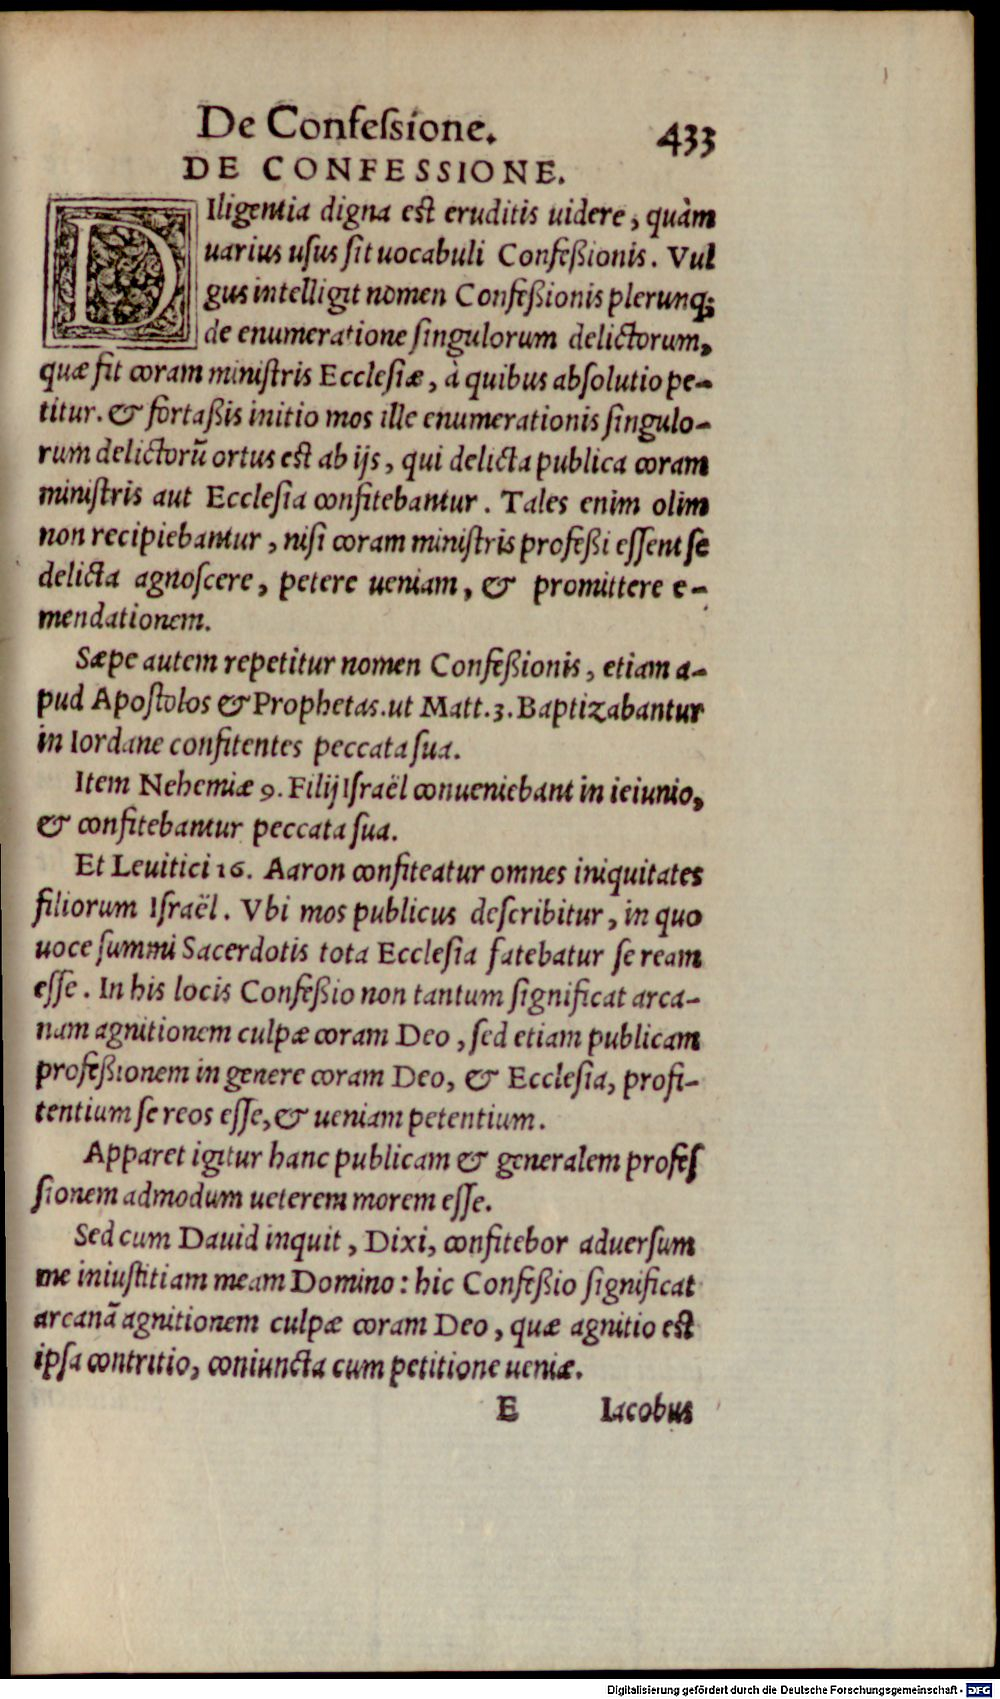 De Confeſsione. 433
DE CONFESSIONE.
DIligentia digna est eruditis uidere, quàm
uarius uſus ſit uocabuli Confeßionis. Vul
gus intelligit nomen Confeßionis plerunq;
de enumeratione ſingulorum delictorum,
quæ fit coram miniſtris Eccleſiæ, à quibus abſolutio pe-
titur. & fortaßis initio mos ille enumerationis ſingulo-
rum delictorũ ortus est ab ijs, qui delicta publica coram
miniſtris aut Eccleſia confitebantur. Tales enim olim
non recipiebantur, niſi coram miniſtris profeßi eſſent ſe
delicta agnoſcere, petere ueniam, & promittere e-
mendationem.
Sæpe autem repetitur nomen Confeßionis, etiam a-
pud Apoſtolos & Prophetas. ut Matt. 3. Baptizabantur
in Iordane confitentes peccata ſua.
Item Nehemiæ 9. Filij Iſraël conueniebant in ieiunio,
& confitebantur peccata ſua.
Et Leuitici 16. Aaron confiteatur omnes iniquitates
filiorum Iſraël. Vbi mos publicus deſcribitur, in quo
uoce ſummi Sacerdotis tota Eccleſia fatebatur ſe ream
eſſe. In his locis Confeßio non tantum ſignificat arca-
nam agnitionem culpæ coram Deo, ſed etiam publicam
profeßionem in genere coram Deo, & Eccleſia, profi-
tentium ſe reos eſſe, & ueniam petentium.
Apparet igitur hanc publicam & generalem profeſ
ſionem admodum ueterem morem eſſe.
Sed cum Dauid inquit, Dixi, confitebor aduerſum
me iniuſtitiam meam Domino: hic Confeßio ſignificat
arcanã agnitionem culpæ coram Deo, quæ agnitio est
ipſa contritio, coniuncta cum petitione ueniæ.
E Iacobus
Digitalisierung gefördert durch die Deutsche Forschungsgemeinschaft - DFG